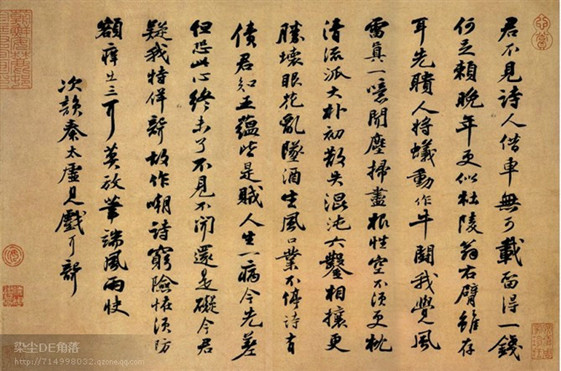 君不見詩人借車無可載留得一錢
何足賴晚年更似杜陵翁右臂雖存
耳先聵人將蟻動作牛鬭我覺風
雷真一噫聞塵掃盡根性空不須更枕
清流派大朴初散失混沌六鑿相攘更
勝壞眼花亂墜酒生風口業不停詩有
債君知五蘊皆是賊人生一病今先差
但恐此心終未了不見不聞還是礙今君
疑我特佯聾故作嘲詩窮險怪須防
額痒出三耳莫放筆端風雨快
次韻秦太虛見戲耳聾
染尘DE角落
http://714998032.qzone.qq.com